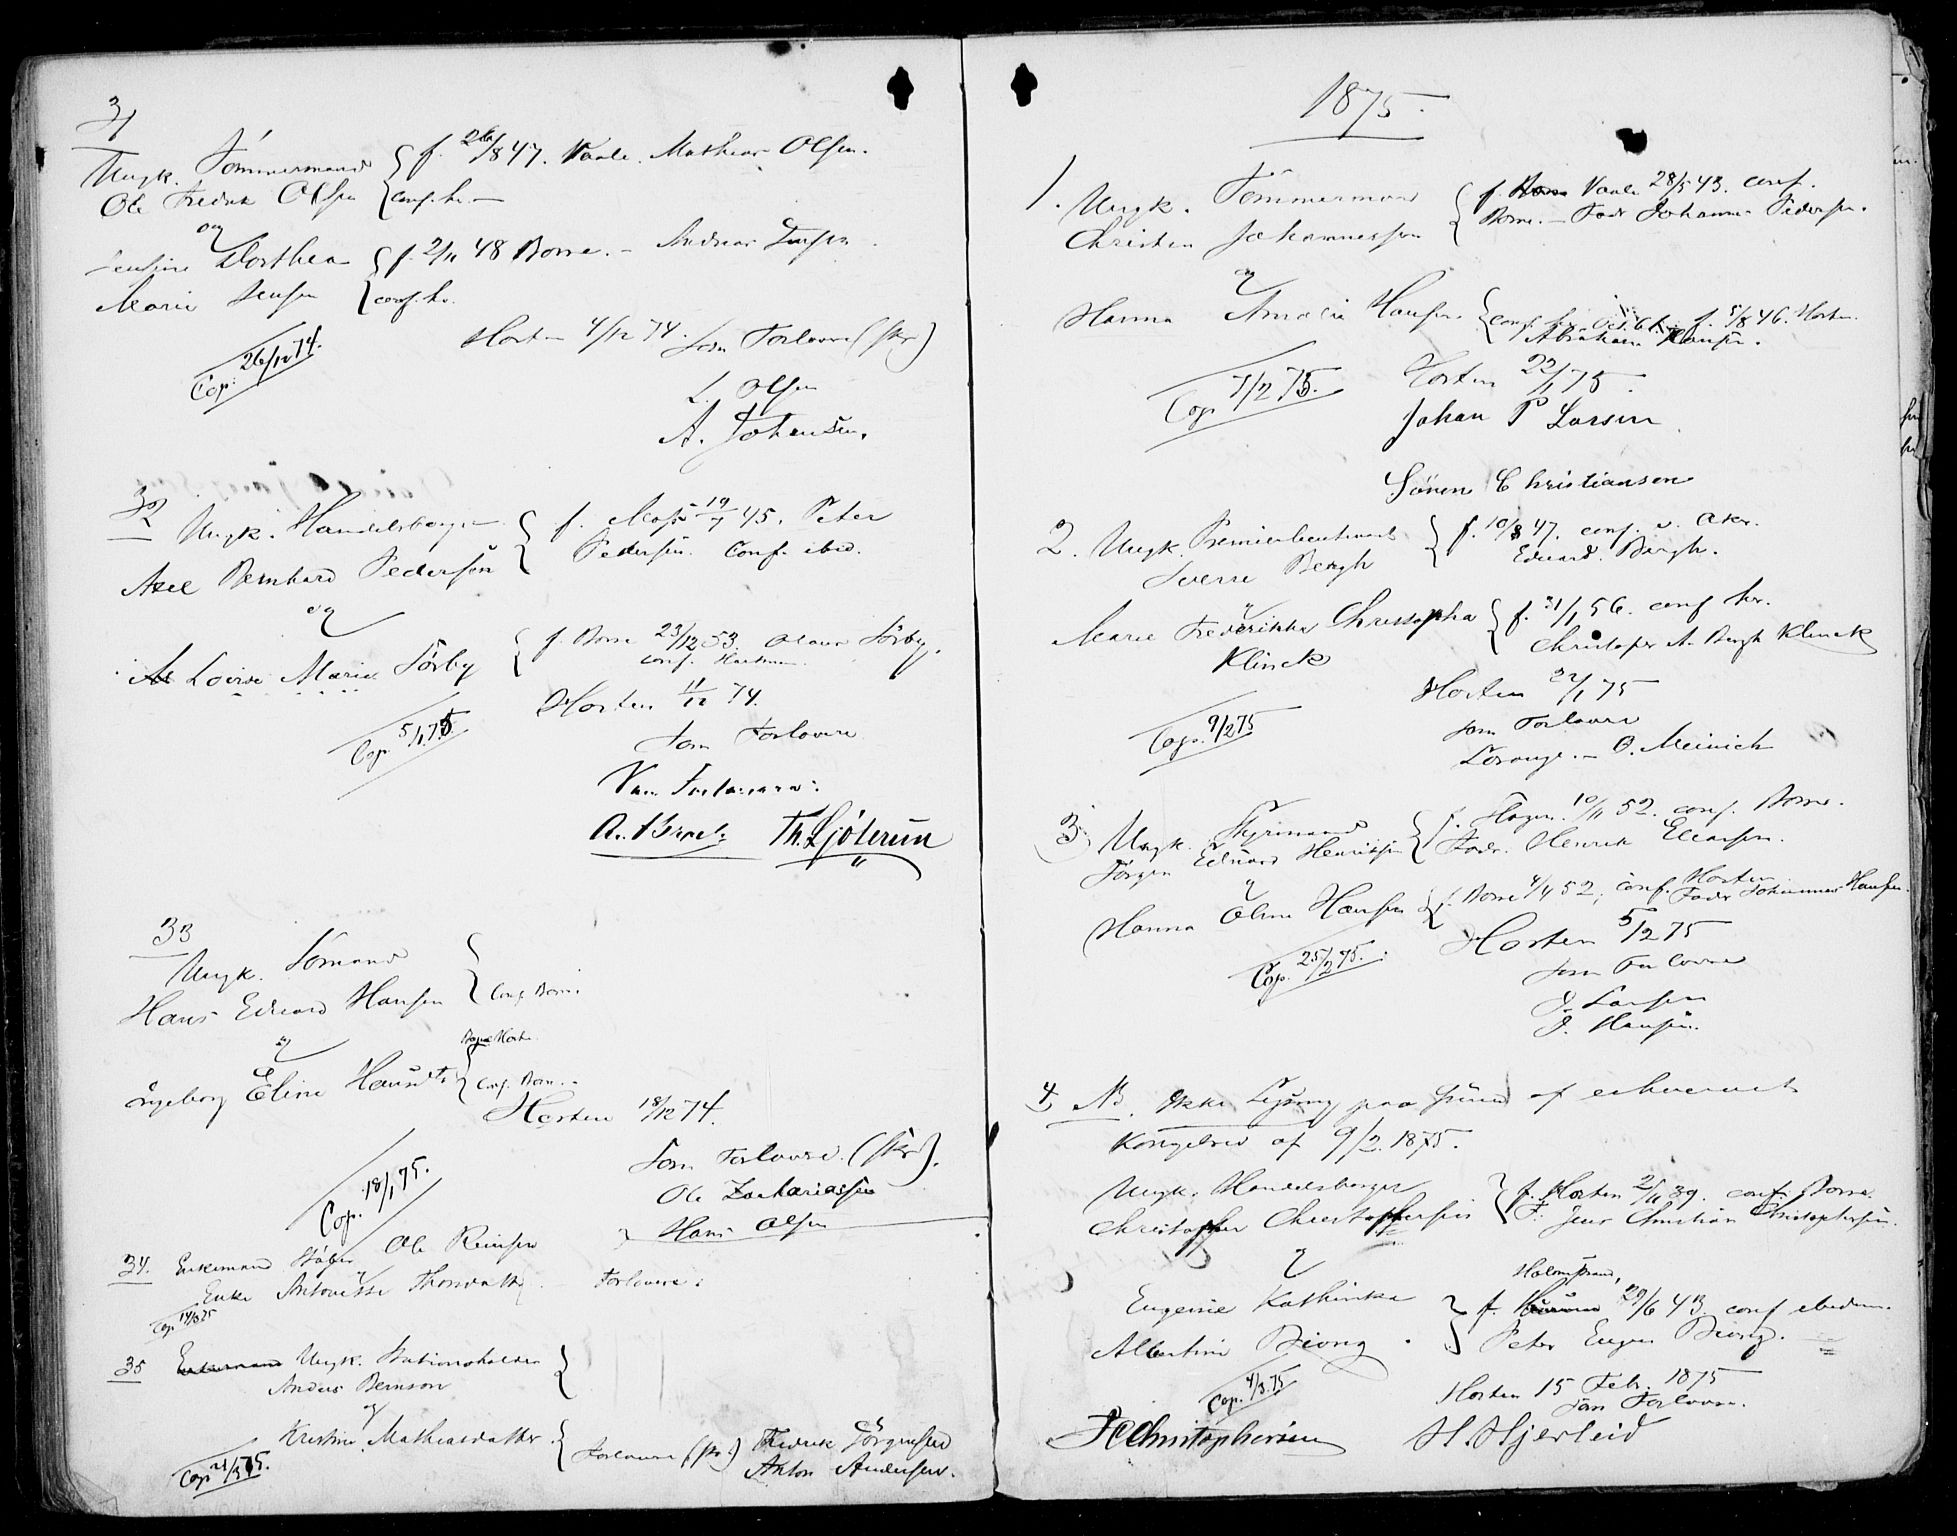 31
Ungk. Tømmermand { f. 26/8 47. Vaale. Mathias Olsen.
Ole Fredrik Olsen { conf. h. —
og
Dorthea { f. 2/11 48 Borre. – Andreas Jensen
Marie Jensen { conf. h.
Horten 4/12 74.
Cop: 26/12 74.
Som Forlovere (skr)
L. Olsen
A. Johansen.
32
Ungk. Handelsborger { f. Moss 19/7 45. Peter
Axel Bernhard Pedersen { Pedersen. Conf. ibid.
og
Lovise Marie Sørby { f. Borre 23/12 53. Olaus Sørby.
conf. Horten
Horten 11/12 74.
Cop. 5/1 75
som Forlovere
A. Th.
33
Ungk. Sømand
Hans Edvard Hansen { Conf. Borre.
og
Ingeborg Eline { Conf. Borre. –
Horten 18/12 74.
Cop. 18/1 75.
Som Forlovere (skr).
Ole Zachariassen
Hans Olsen
34. Enkemand Ole Reinsen
Enke Antonette Thorsdatter Forlovere:
Cop.
35 Enkemand Ungk. Stationsholder
Anders Bernson
og
Kristine Mathiasdatter { Forlovere (skr) Fredrik Jørgensen
Cop. Anton Andersen.
1875.
1. Ungk. Tømmermand { f. Borre Vaale 28/5 43. conf.
Christen Johannessen { Borre. – Fadr Johannes Pedersen.
og
Hanna Amalia Hansen { conf. f. 5/8 46. Horten.
Abraham Hansen.
Cop. 7/2 75. Horten 22/1 75.
Johan P Larsen
Sören Christiansen
2. Ungk. Premierlieutenant { f. 10/8 47. conf. v. Aker.
Sverre Bergh { Edvard Bergh.
og
Marie Frederikke Christopha { f. 31/1 56. conf. her.
Klinck Christopher A. Bergh Klinck
Horten 22/1 75
Cop. 9/2 75
som Forlovere
Lorange. – O. Meinich
3. Ungk. Styrmand { f. Skogen. 10/11 52. conf. Borre.
Jørgen Edvard Henriksen { Fadr. Henrik Eliassen.
og
Hanna Oline Hansen { f. Borre 4/4 52, conf. Horten
Fadr Johannes Hansen.
Horten 5/2 75
Cop. 25/2 75.
som Forlovere
J. Larsen
J. Hansen.
4. NB. Ikke Lysning paa Grund af erhvervet
Kongebrev af 9/2 1875.
Ungk. Handelsborger { f. Horten 2/11 39. conf. Borre.
Christopher Christophersen { F. Jens Christian Christophersen.
og
Holmestrand,
Eugenie Kathinka } f. 29/6 43. conf ibidem.
Albertine Biong. } Peter Eugen Biong. –
Cop. 4/3 75 Horten 15 Febr. 1875
som Forlovere.
JCChristophersen H. Hjerleid